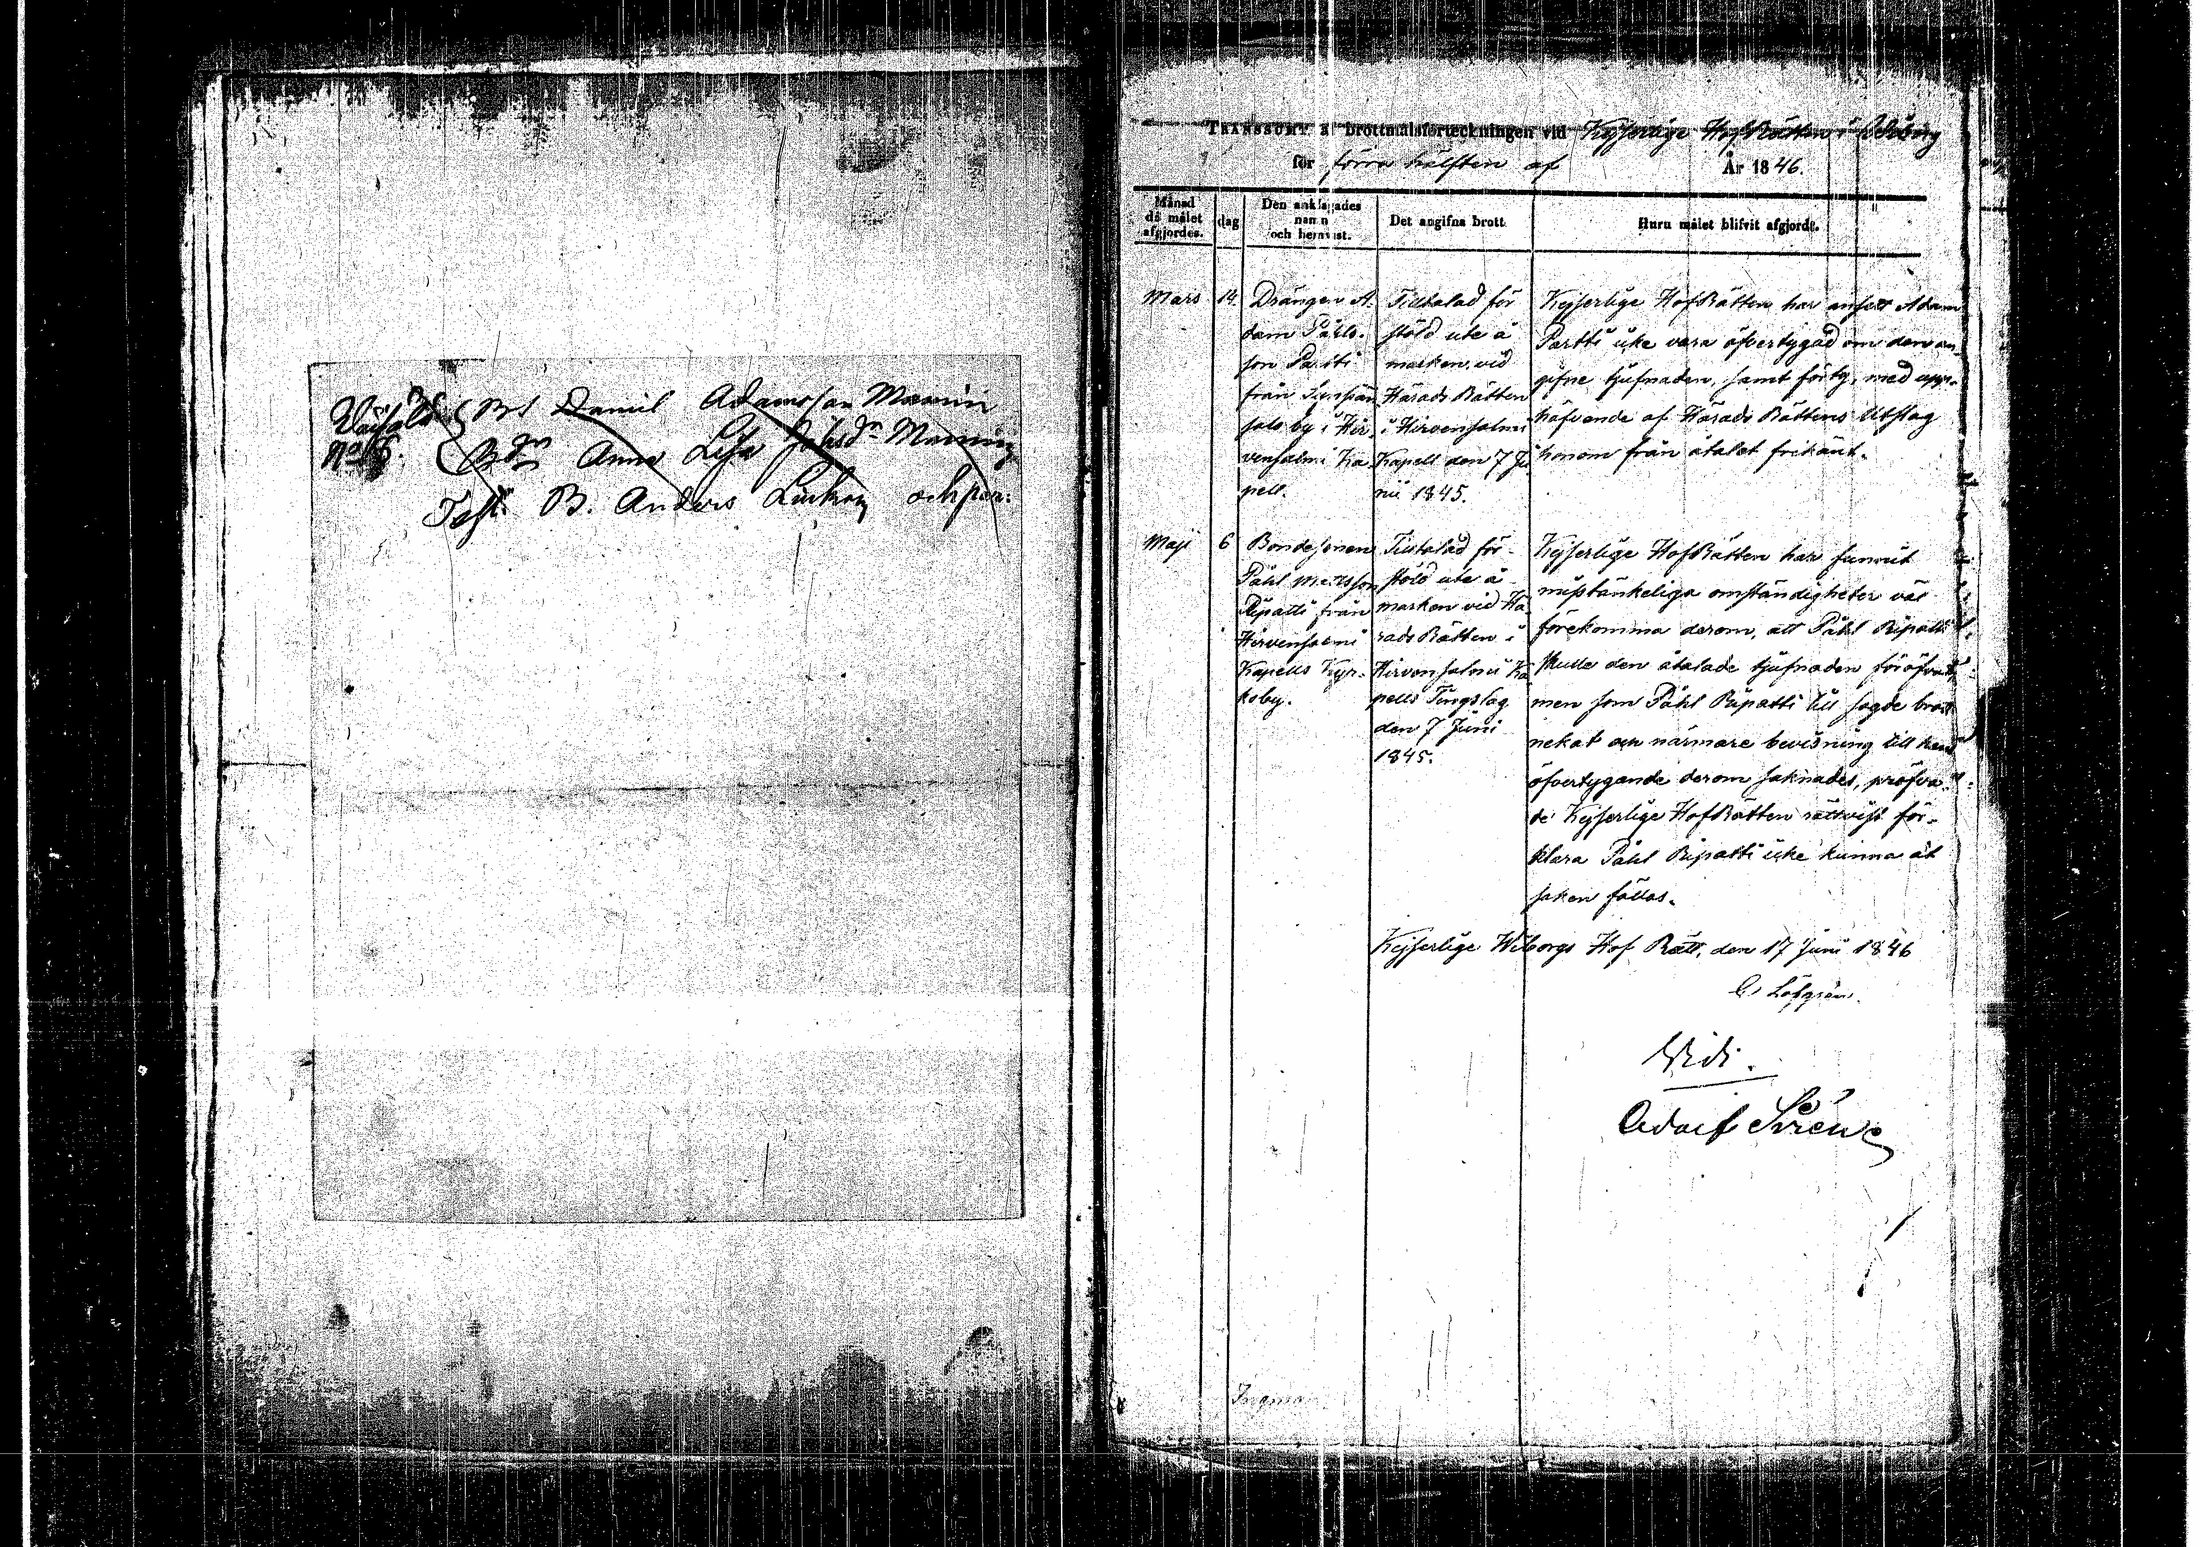 Bs Daniel Adamsson Mannin
No 16.
Bdr Anna Lisa Johsdr Mannin
Test. B. Anders
TRANSSUMT af brottmålsförteckningen vid Kejserlige HofRätten i Wiborg
för förra hälften af År 1846.
Månad då målet afgjordes.
dag
Den anklagades namn och hemvist.
Det angifna brott.
Huru målet blifvit afgjordt.
Mars
14.
Drängen A-
dam Påhls-
son Partti
från
salo by i Hir-
vensalmi Ka-
pell.
Tilltalad för
stöld ute å
marken, vid
Härads Rätten
i Hirvensalmi
Kapell den 7 Ju-
nii 1845.
Kejserlige HofRätten har ansett Adam
Partti icke vara öfvertygad om den an-
gifne tjufnaden, samt förty, med upp-
häfvande af Härads Rättens Utslag
honom från åtalet frikänt.
Maji
6
Bondesonen
Påhl Matsson
Ripatti från
Hirvensalmi
Kapells Kyr-
koby.
Tilltalad för
stöld ute å
marken vid Hä-
rads Rätten i
Hirvensalmi Ka-
pells Tingslag
den 7 Juni
1845.
Kejserlige HofRätten har funnit
misstänkeliga omständigheter väl
förekomma derom, att Påhl Ripatti
skulle den åtalade tjufnaden föröfvat,
men som Påhl Ripatti till sagde brott
nekat och närmare bevisning till hans
öfvertygande derom saknades, pröfva-
de Kejserlige HofRätten rättvist för-
klara Påhl Ripatti icke kunna åt
saken fällas.
Kejserlige Wiborgs Hof Rätt, den 17 Juni 1846
C. Löfgrén.
Vidi.
Adolf Sirén